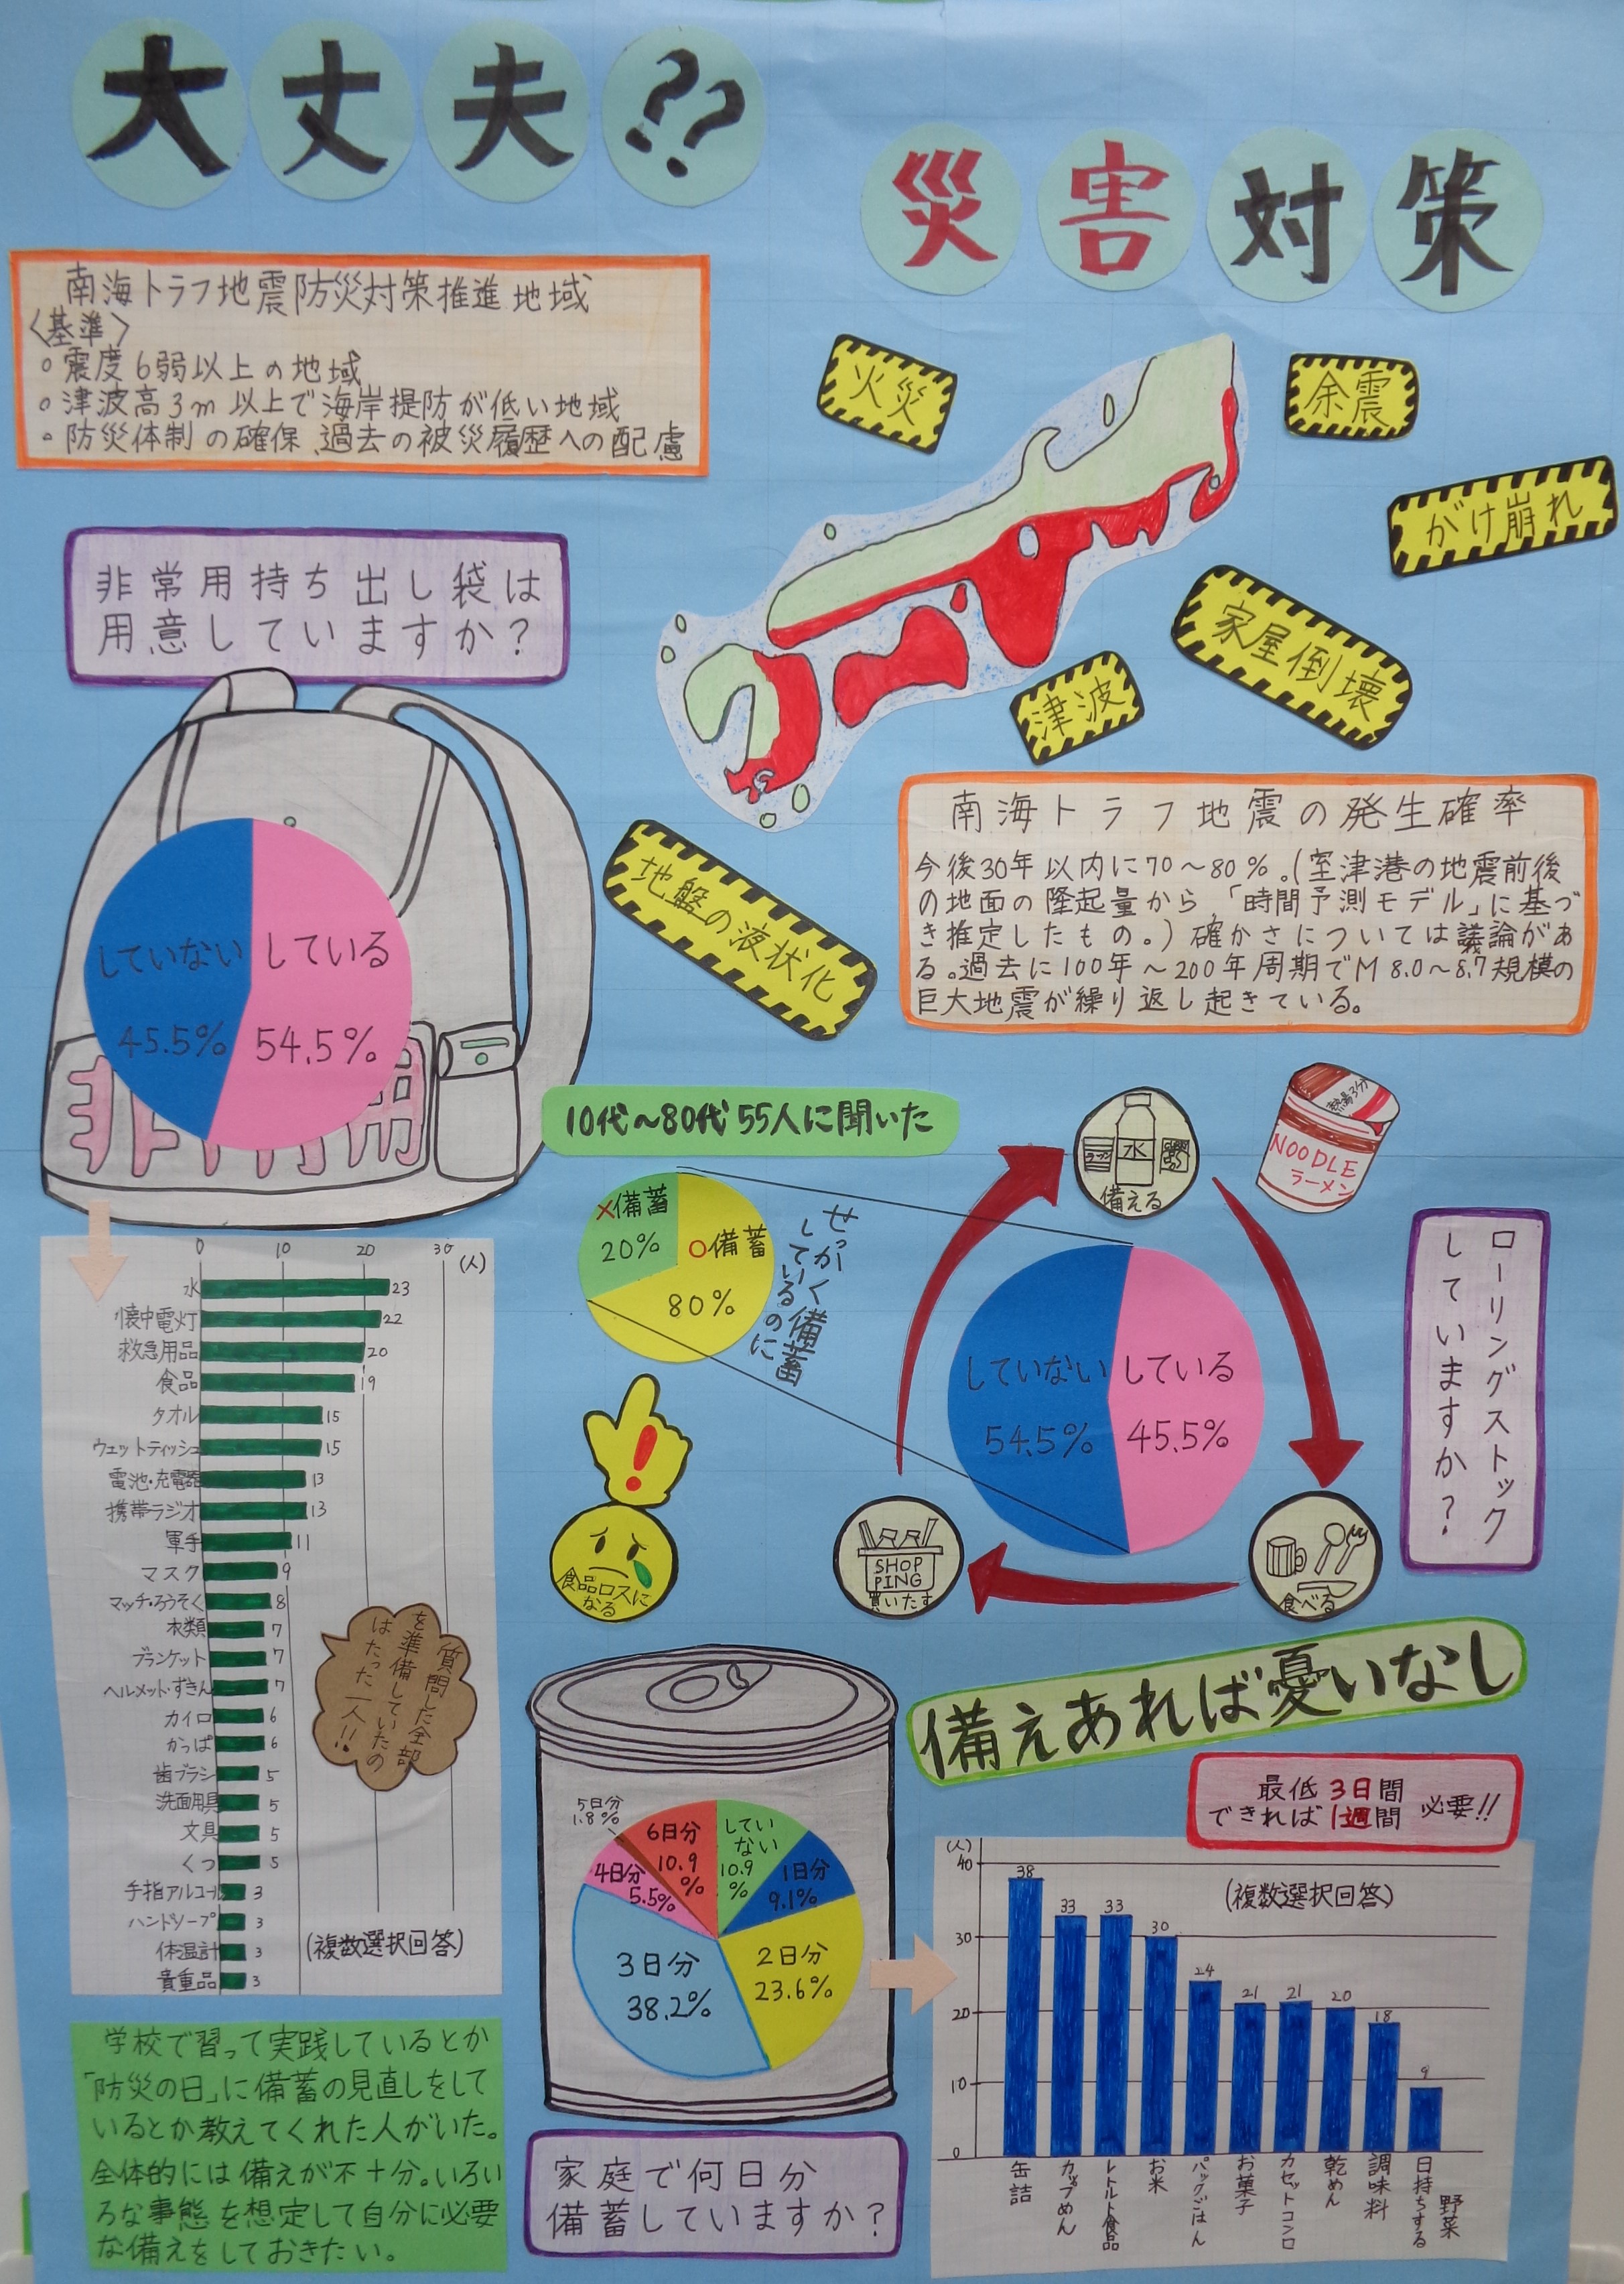 大丈夫??
災害対策
南海トラフ地震防災対策推進地域
〈基準〉
○震度6弱以上の地域
○津波高3m以上で海岸提防が低い地域
○防災体制の確保、過去の被災履歴への配慮
火災
余震
がけ崩れ
家屋倒壊
津波
地盤の液状化
非常用持ち出し袋は
用意していますか?
していない
45.5%
している
54.5%
非
用
南海トラフ地震の発生確率
今後30年以内に70~80%。(室津港の地震前後
の地面の隆起量から「時間予測モデル」に基づ
き推定したもの。)確かさについては議論があ
る。過去に100年~200年周期でM8.0~8.7規模の
巨大地震が繰り返し起きている。
10代~80代55人に聞いた
×備蓄
20%
○備蓄
80%
せっかく備蓄
しているのに
食品ロスに
なる
水
ラーメン
備える
熱湯3分
NOODLE
ラーメン
していない
54.5%
している
45.5%
SHOP
PING
買いたす
食べる
ローリングストック
していますか?
0 10 20 30 (人)
水 23
懐中電灯 22
救急用品 20
食品 19
タオル 15
ウェットティッシュ 15
電池・充電器 13
携帯ラジオ 13
軍手 11
マスク 9
マッチ・ろうそく 8
衣類 7
ブランケット 7
ヘルメット・ずきん 7
カイロ 6
かっぱ 6
歯ブラシ 5
洗面用具 5
文具 5
くつ 5
手指アルコール 3
ハンドソープ 3
体温計 3
貴重品 3
(複数選択回答)
質問した全部
を準備していたの
はたった一人!!
備えあれば憂いなし
最低3日間
できれば1週間
必要!!
してい
ない
10.9
%
1日分
9.1%
2日分
23.6%
3日分
38.2%
4日分
5.5%
5日分
1.8%
6日分
10.9
%
家庭で何日分
備蓄していますか?
(人)
40
30
20
10
0
(複数選択回答)
38 33 33 30 24 21 21 20 18 9
缶詰
カップめん
レトルト食品
お米
パックごはん
お菓子
カセットコンロ
乾めん
調味料
日持ちする
野菜
学校で習って実践しているとか
「防災の日」に備蓄の見直しをして
いるとか教えてくれた人がいた。
全体的には備えが不十分。いろい
ろな事態を想定して自分に必要
な備えをしておきたい。